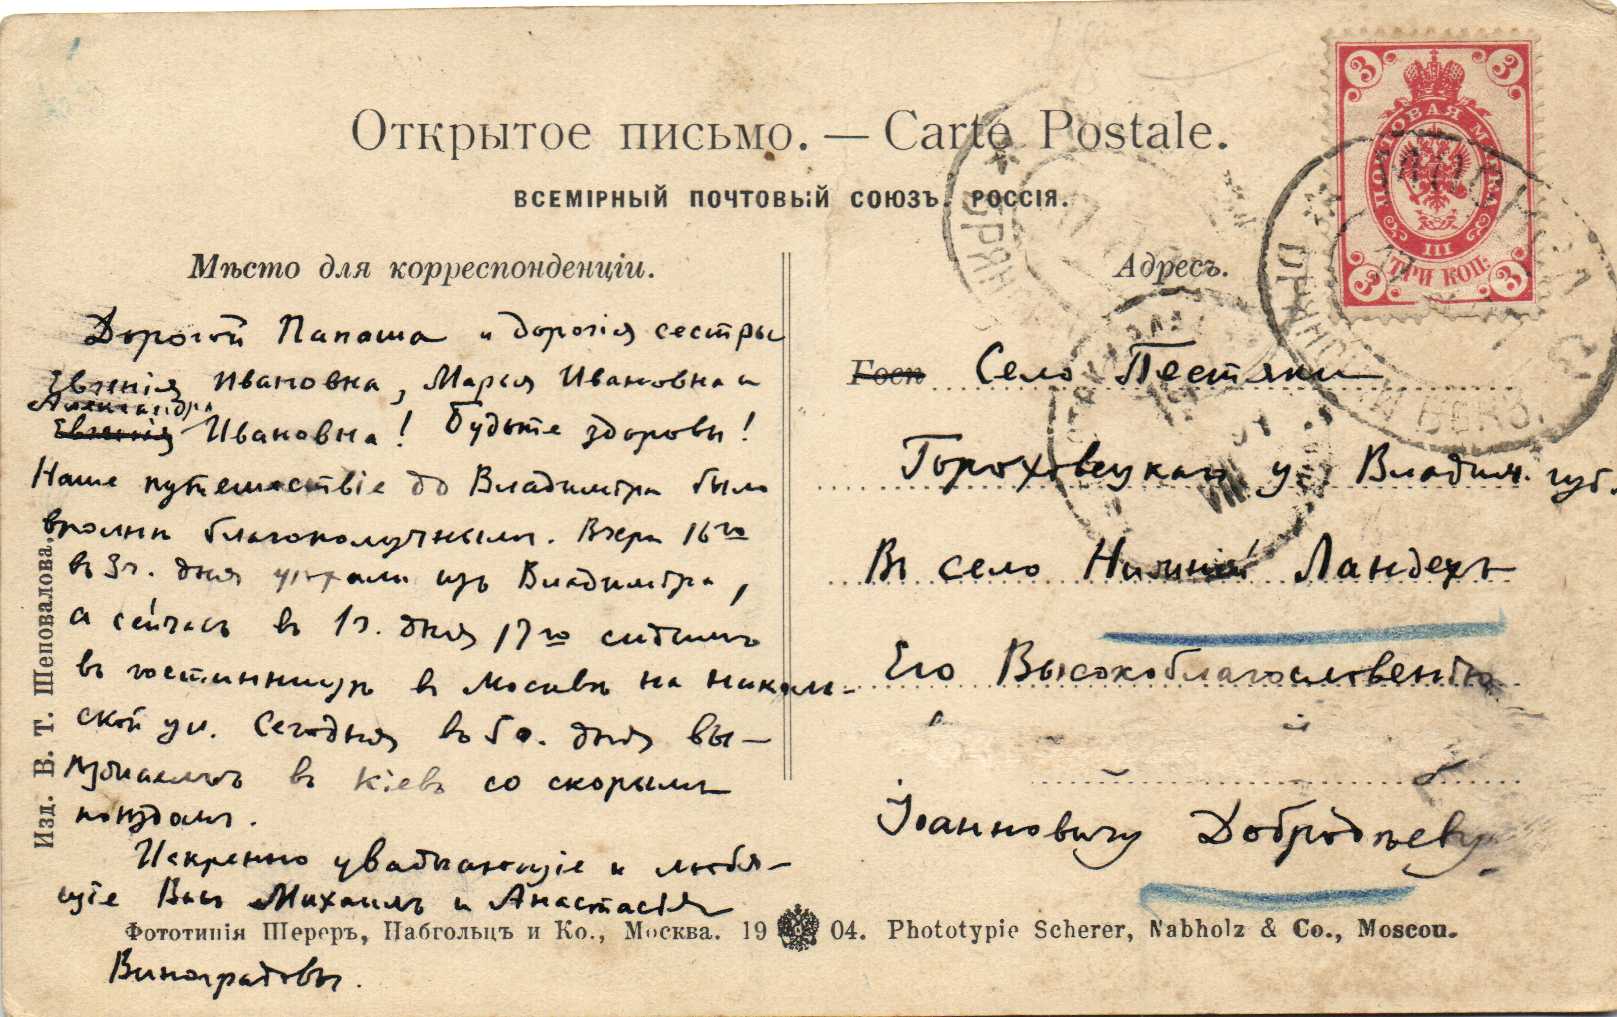 Открытое письмо. — Carte Postale.
ВСЕМІРНЫЙ ПОЧТОВЫЙ СОЮЗЪ. РОССІЯ.
Мѣсто для корреспонденціи.
Дорогой Папаша и дорогія сестры
Евгенія Ивановна, Марья Ивановна и
Александра
Евгенія Ивановна! Будьте здоровы!
Наше путешествіе до Владиміра было
вполнѣ благополучнымъ. Вчера 16го
въ 3ч. дня уѣхали изъ Владиміра,
а сейчасъ въ 1ч. дня 17го сидимъ
въ гостинницѣ въ Москвѣ на николь-
ской ул. Сегодня въ 5 ч. дня вы-
ѣзжаемъ въ Кіевъ со скорымъ
поѣздомъ.
Искренно уважающіе и любя-
щіе Васъ Михаилъ и Анастасія
Виноградовы.
Адресъ.
Госп
Село Пестяки
Гороховецкаго у. Владим. губ.
Въ село Нижній Ландехъ
Его Высокоблагословенію
Іоанновичу Добродѣеву
Изд. В. Т. Шеповалова.
Фототипія Шереръ, Набгольцъ и Ко., Москва. 19 04. Phototypie Scherer, Nabholz & Co., Moscou.
3 3
ПОЧТОВАЯ МАРКА
III
ТРИ КОП.
3 3